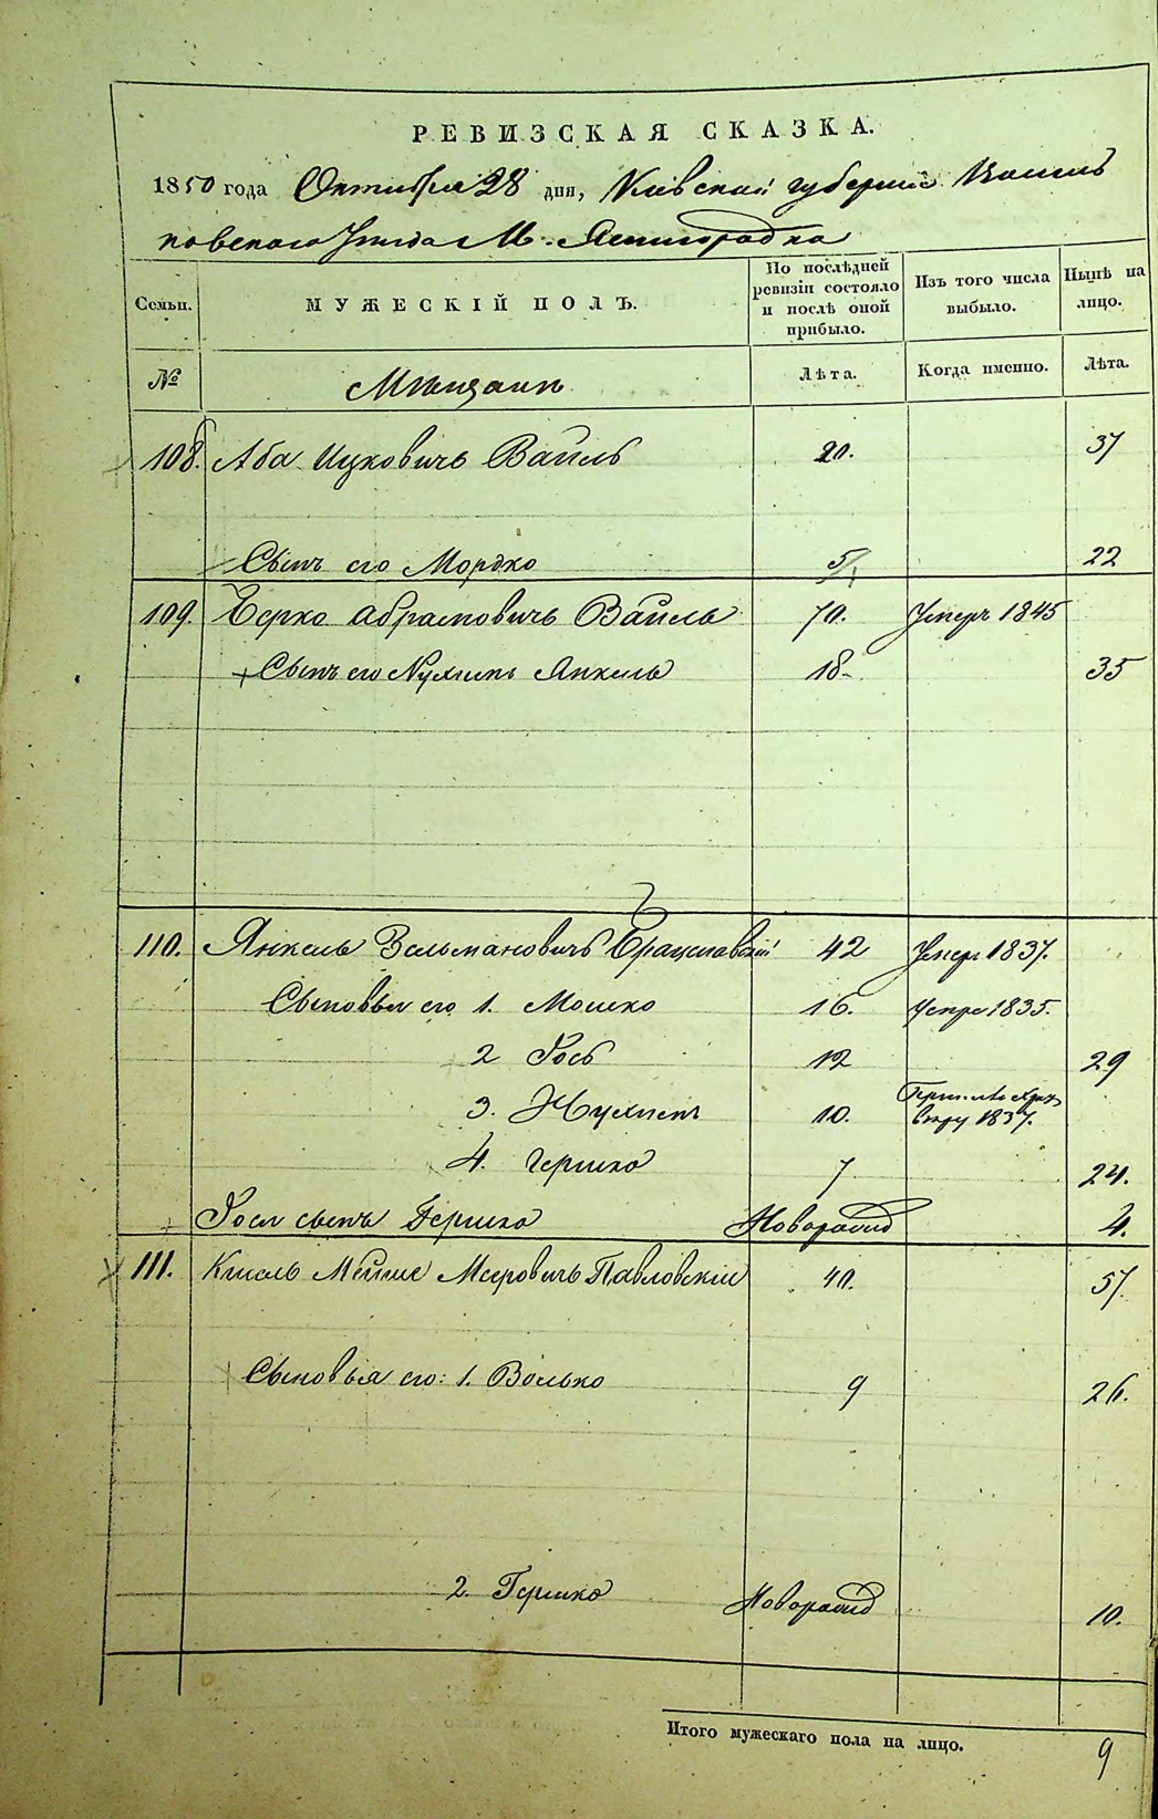 РЕВИЗСКАЯ СКАЗКА.
1850 года Октября 28 дня, Киевской губернии Василь
ковского Уезда М. Ясногородка
Семьи. МУЖЕСКІЙ ПОЛЪ. По послѣдней ревизіи состояло и послѣ оной прибыло. Изъ того числа выбыло. Нынѣ на лицо.
№ Мещане Лѣта. Когда именно. Лѣта.
108. Аба Ицковичъ Ваиль 20. 37
Сынъ его Мордко 5 22
109. Берко Абрамовичъ Ваиль 70. Умеръ 1845
Сынъ его Нухимъ Янкель 18. 35
110. Янкель Зельмановичъ Брацлавский 42 Умеръ 1837.
Сыновья его 1. Мошко 16. Умеръ 1835.
2 Іось 12 29
3. Нухимъ 10. 1837.
4. Гершко 7 24.
Іося сынъ Гершко Новорожд 4.
111. Кисель Мейше Меировичъ Павловский 40. 57.
Сыновья его: 1. Волько 9 26.
2. Гершко Новорожд 10.
Итого мужескаго пола на лицо. 9